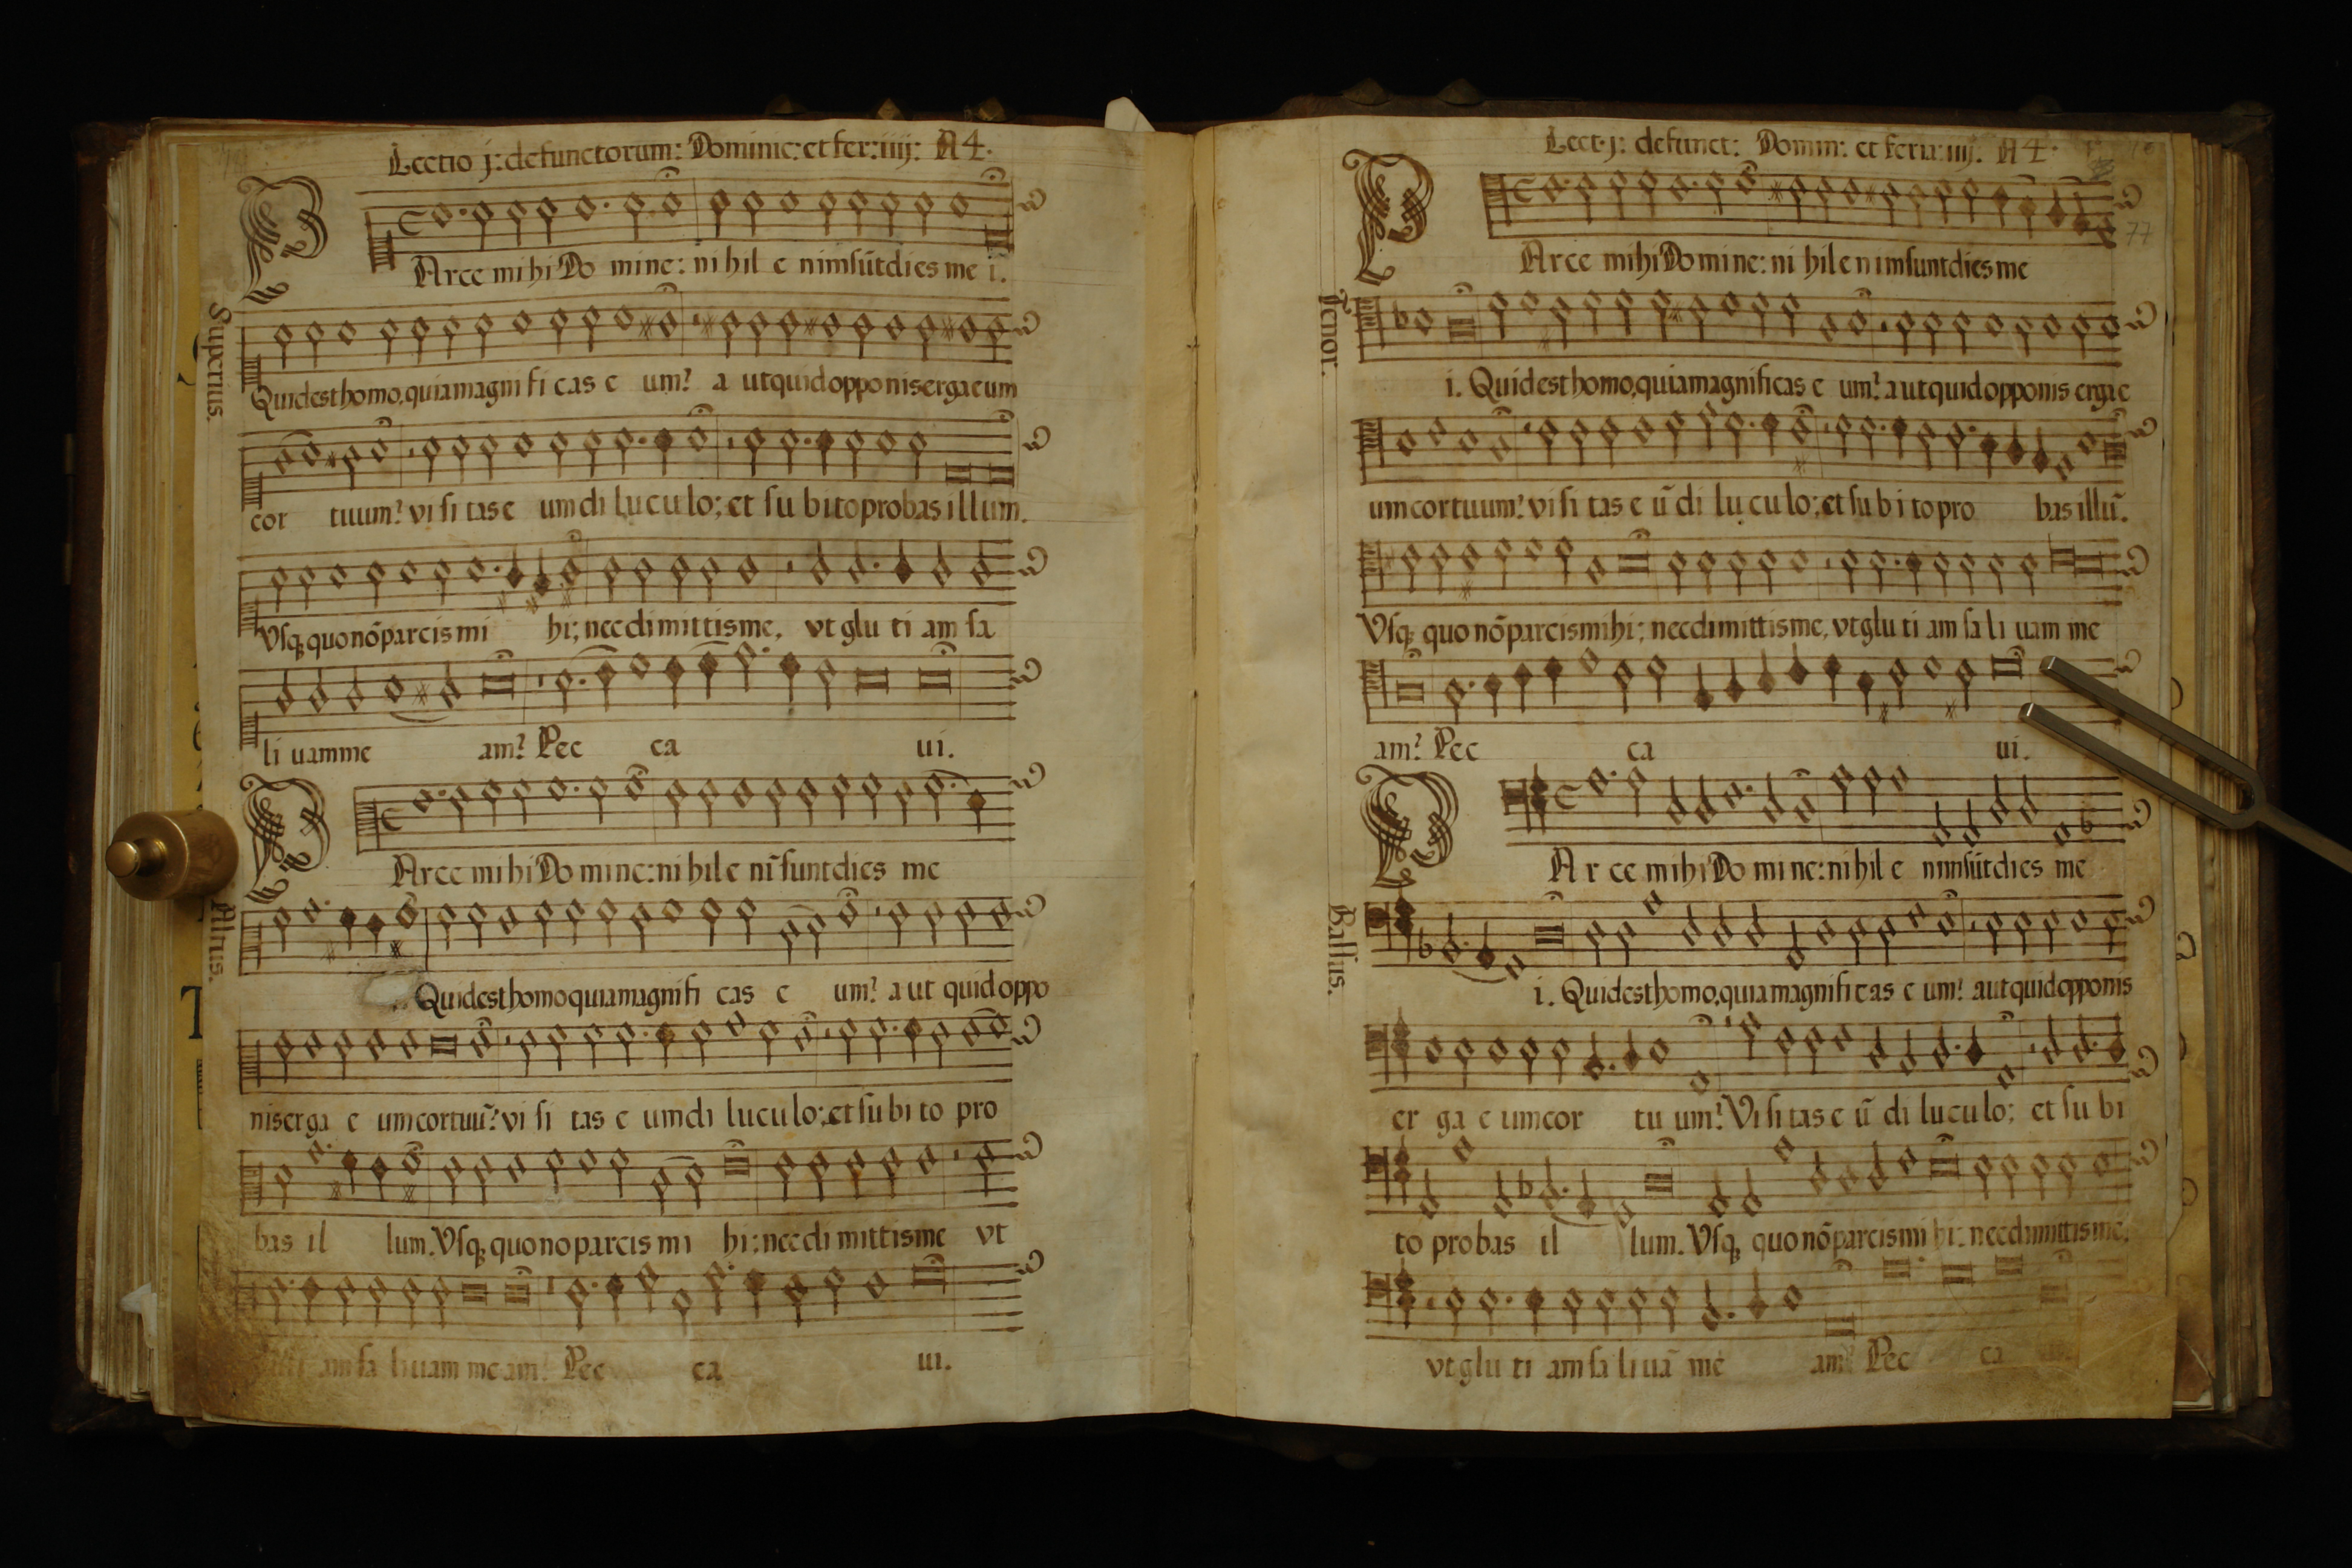 Lectio j: defunctorum: Dominic: et fer: iiij: A 4.
PArce mihi Do mine: ni hil e nimsūt dies me i.
Superius.
Quid est homo, quia magni fi cas e um? a ut quid opponis erga eum
cor tuum? vi si tas e um di lu cu lo; et su bito probas illum.
Vsq quo nō parcis mi hi; nec dimittis me, vt glu ti am sa
li uam me am? Pec ca ui.
PArce mi hi Do mi ne: ni hil e nī sunt dies me
Altus.
Quid est homo quia magni fi cas e um? a ut quid oppo
nis erga e um cor tuū? vi si tas e um di lu cu lo; et su bi to pro
bas il lum. Vsq quo no parcis mi hi: nec di mittis me vt
am sa li uam me am? Pec ca ui.
Lect. j: defunct: Domin: et feria: iiij. A 4.
77
PArce mihi Do mi ne: ni hil e nim sunt dies me
Tenor.
i. Quid est homo, quia magnificas e um? a ut quid opponis erga e
um cor tuum? vi si tas e ū di lu cu lo; et su bi to pro bas illū.
Vsq quo nō parcis mihi; nec dimittis me, vt glu ti am sa li uam me
am? Pec ca ui.
PAr ce mihi Do mi ne: ni hil e nim sūt dies me
Bassus.
i. Quid est homo, quia magnifi cas e um? aut quid opponis
er ga e um cor tu um? Vi si tas e ū di lu cu lo; et su bi
to pro bas il lum. Vsq quo nō parcis mi hi: nec dimittis me,
vt glu ti am sa li uā me am? Pec ca